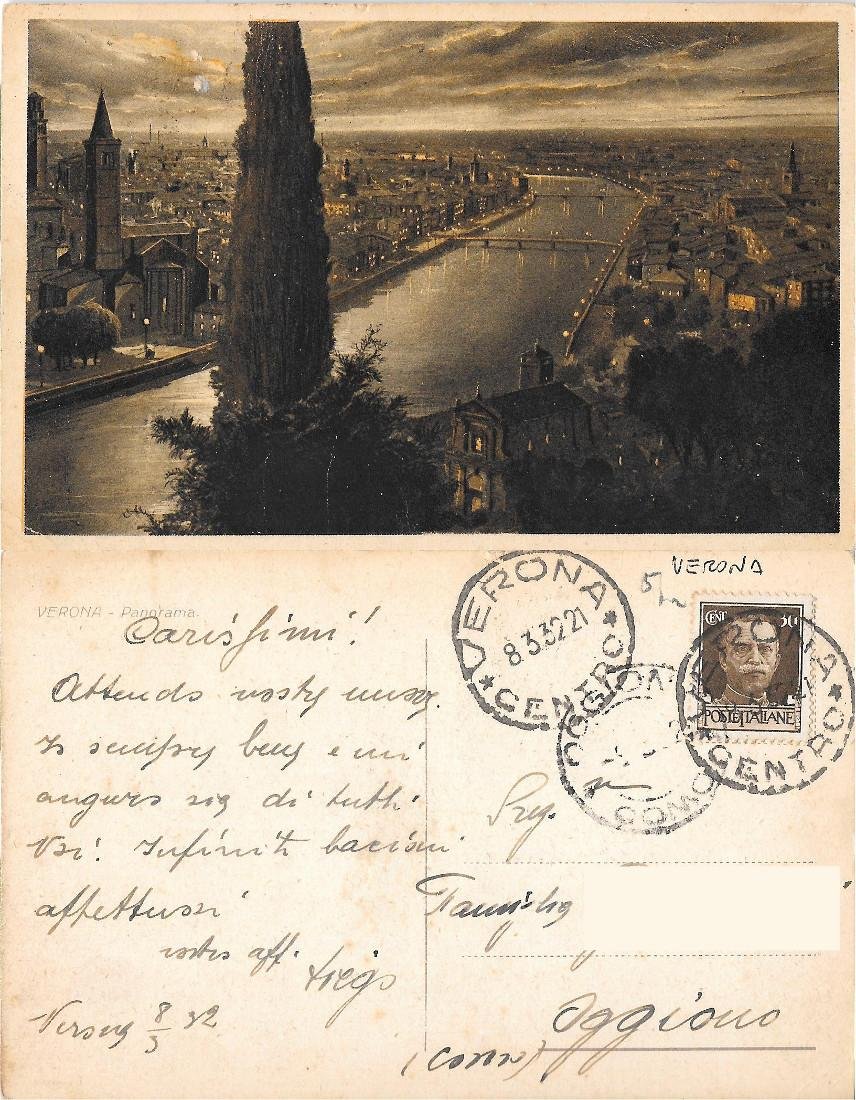 VERONA - Panorama.
VERONA
CENTRO
8.3.32.21
VERONA
CENT. 30
POSTE ITALIANE
VERONA
CENTRO
OGGIONO
COMO
Carissimi!
Attendo vostre nuove.
Io sempre bene e mi
auguro sia di tutti
Voi. Infiniti bacioni
affettuosi
vostro aff.
Verona 8/3 32
Famiglia
Oggiono
(Como)